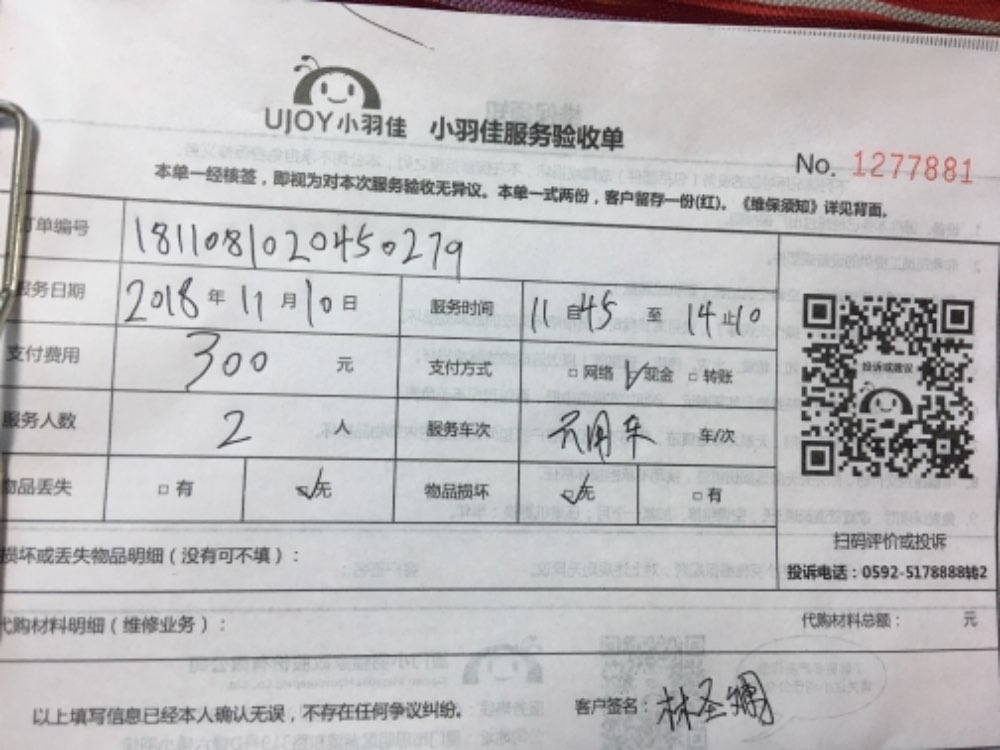 UJOY小羽佳 小羽佳服务验收单
No. 1277881
本单一经核签，即视为对本次服务验收无异议。本单一式两份，客户留存一份(红)。《维保须知》详见背面。
订单编号 1811081020450279
服务日期 2018年11月10日 服务时间 11自45至14止10
支付费用 300元 支付方式 □网络 ☑现金 □转账
服务人数 2人 服务车次 无用车 车/次
物品丢失 □有 ☑无 物品损坏 ☑无 □有
投诉或建议
扫码评价或投诉
投诉电话：0592-5178888转2
损坏或丢失物品明细（没有可不填）：
代购材料明细（维修业务）： 代购材料总额： 元
以上填写信息已经本人确认无误，不存在任何争议纠纷。 客户签名：林圣